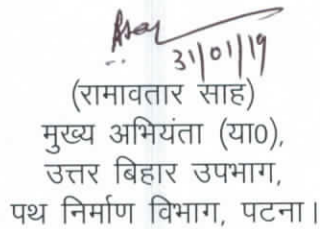 31/01/19
(रामावतार साह)
मुख्य अभियंता (या0),
उत्तर बिहार उपभाग,
पथ निर्माण विभाग, पटना।